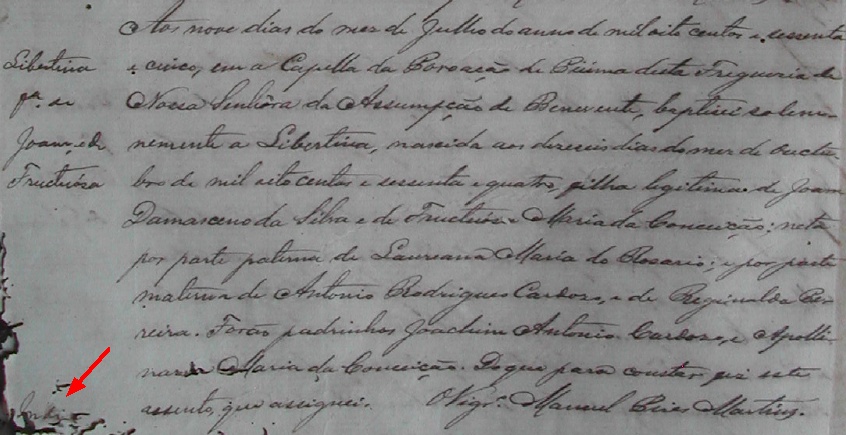 Libertina
fa. de
Joam, e de
Fructuósa
Aos nove dias do mez de Julho do anno de mil oito centos e sessenta
e cinco, em a Capella da Povoação de Piúma desta Freguezia de
Nossa Senhôra da Assumpção de Benevente, baptisei solem-
nemente a Libertina, nascida aos dezeseis dias do mez de Outu-
bro de mil oito centos e sessenta e quatro, filha legitima de Joam
Damasceno da Silva e de Fructuosa Maria da Conceição; neta
por parte paterna de Laureana Maria do Rosario; e por parte
materna de Antonio Rodrigues Cardozo, e de Reginalda Pe-
reira. Forão padrinhos Joachim Antonio Cardozo, e Apolli-
naria Maria da Conceição. Do que para constar fiz este
assento, que assignei. O Vigro. Manoel Pires Martins.